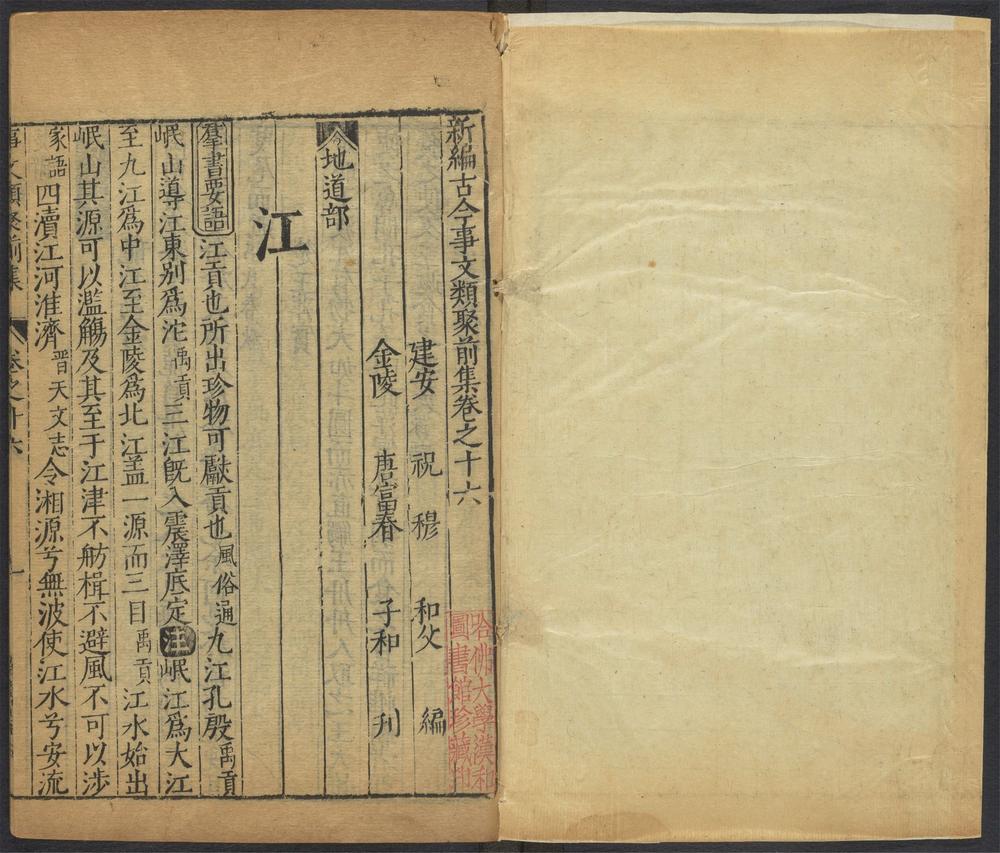 新編古今事文類聚前集卷之十六
建安 祝 穆 和父 編
金陵 唐富春 子和 刋
地道部
江
羣書要語江貢也所出珍物可獻貢也風俗通九江孔殷禹貢
岷山導江東别爲沱禹貢三江旣入震澤底定注岷江爲大江
至九江爲中江至金陵爲北江盖一源而三目禹貢江水始出
岷山其源可以濫觴及其至于江津不舫楫不避風不可以涉
家語四瀆江河淮濟晋天文志令湘源兮無波使江水兮安流
事文類聚前集 卷之十六 一
哈佛大學漢和
圖書館珍藏印